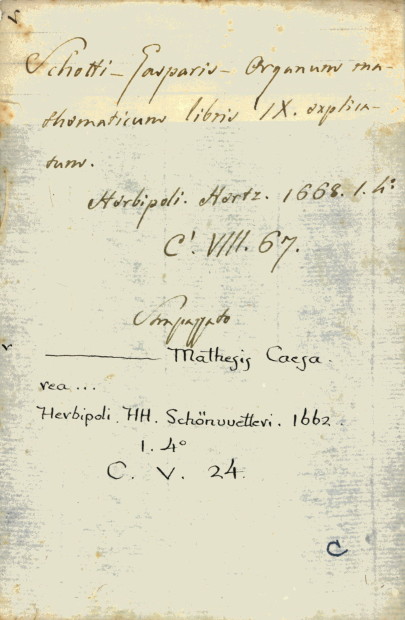 Schotti - Gasparis - Organum ma-
thematicum libris IX. explica-
tum.
Herbipoli. Hertz. 1668. 1. 4°
C. VIII. 67.
Strapazzato
Mathesis Caesa.
rea...
Herbipoli. HH. Schönvvetteri. 1662.
1. 4°
C. V. 24.
C